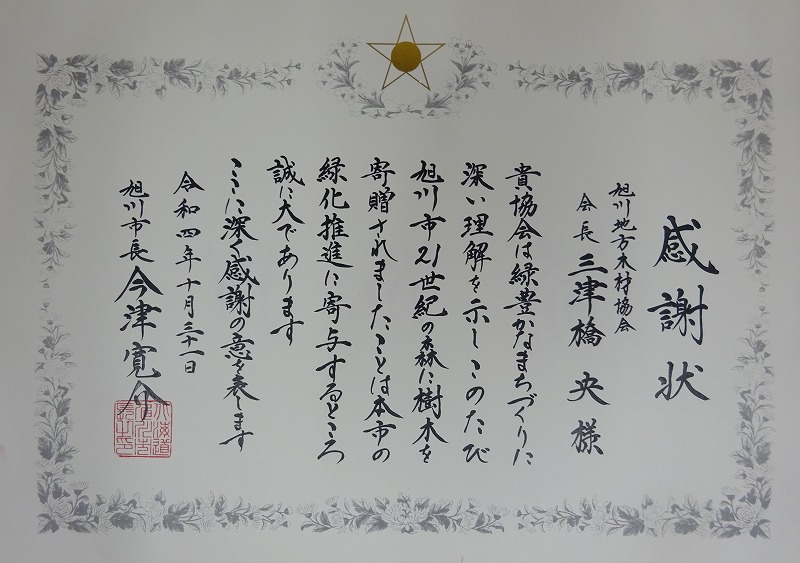 感謝状
旭川地方木材協会
会長 三津橋 央 様
貴協会は緑豊かなまちづくりに
深い理解を示しこのたび
旭川市21世紀の森に樹木を
寄贈されましたことは本市の
緑化推進に寄与するところ
誠に大であります
ここに深く感謝の意を表します
令和四年十月三十一日
旭川市長 今津寛介
北海道
旭川市
長之印